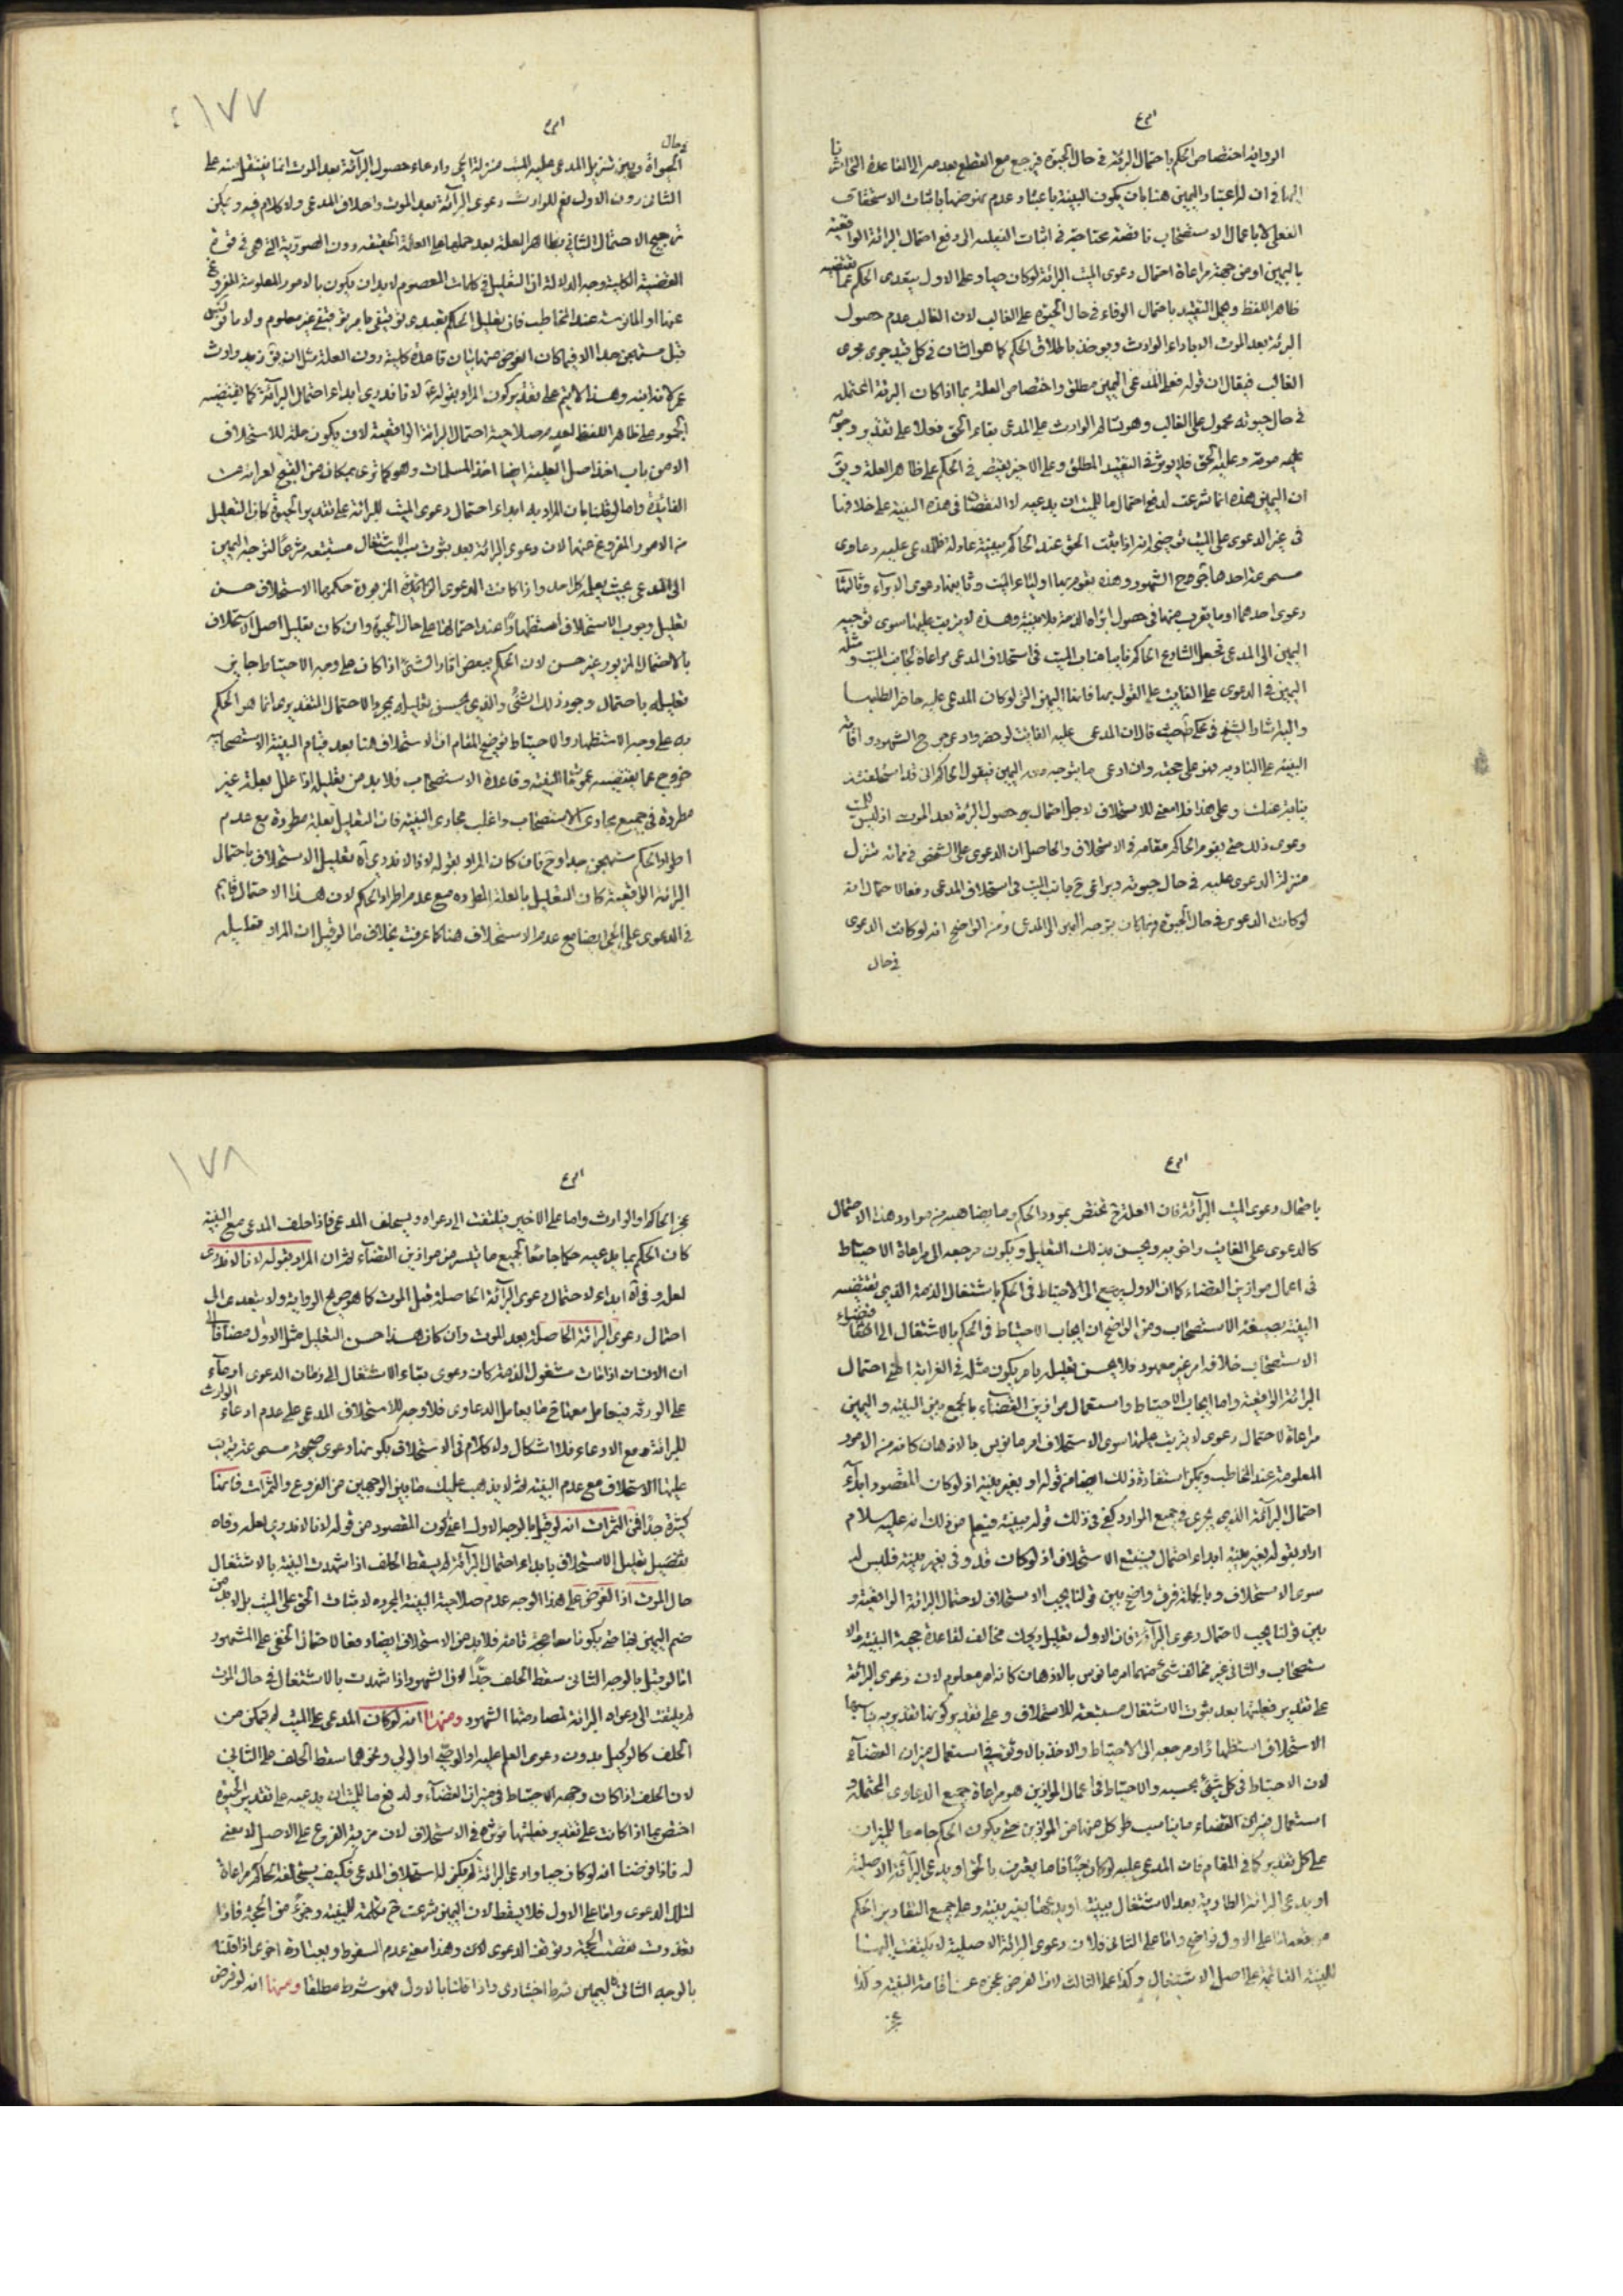 الرواية اختصاص الحكم باحتمال البرائة في حال الحيوة فيرجع مع القطع بعدمه الى القاعدة التي اشرنا
اليها في ان الاعتبار اليمين هنا بان يكون البينة باعتبار عدم نهوضها باثبات الاستحقاق
الفعلي الا باعمال الاستصحاب ناقصة محتاجة في اثبات الفعلية الى دفع احتمال البرائة الواقعية
باليمين او من جهة مراعاة احتمال دعوى الميت البرائة لو كان حيا وعلى الاول يتعدى الحكم عما يقتضيه
ظاهر اللفظ ويحمل التقييد باحتمال الوفاء في حال الحيوة على الغالب لان الغالب عدم حصول
البرئة بعد الموت الا باداء الوارث ويوخذ باطلاق الحكم كما هو الشان في كل قيد جرى مجرى
الغالب فيقال ان قوله فعلى المدعي اليمين مطلق واختصاص العلة بما اذا كان البرئة المحتملة
في حال حيوته محمول على الغالب وهو تسالم الوارث على المدعي بقاء الحق فعلا على تقدير وجوبه
عليه موته وعليه الحق فلا يوثر في التقييد المطلق وعلى الاخير يقتصر في الحكم على ظاهر العلة ويق
ان اليمين هذه انما شرعت لدفع احتمال ما للميت ان يدعيه لا النقصان في هذه البينة على خلافها
في غير الدعوى على الميت توضيحه انه اذا ثبت الحق عند الحاكم ببينة عادلة فللمدعى عليه دعاوى
مسموعة احدها جرح الشهود وهذه يقوم بها اولياء الميت وثانيها دعوى الابراء وثالثها
دعوى احدهما او ما يقرب منها في حصول ابراء الذمة بلا بينة وهذه لا يترتب عليها سوى توجيه
اليمين الى المدعي فجعل الشارع الحاكم نايبا مناب الميت في استحلاف المدعي مراعاة لجانب الميت ومثله
اليمين في الدعوى على الغايب على القول بها فانها اليمين التي لو كان المدعى عليه حاضرا لطلبها
واليه اشار الشيخ في محكي حيث قال ان المدعى عليه الغائب لو حضر وادعى جرح الشهود واقامة
البينة على التادية فهو على حجته وان ادعى ما يتوجه معه اليمين فيقول الحاكم اني قد استحلفته
نيابة عنك وعلى هذا فلا معنى للاستحلاف لاجل احتمال حصول البرئة بعد الموت اذ ليس للميت
دعوى ذلك حتى يقوم الحاكم مقامه في الاستحلاف والحاصل ان الدعوى على الشخص في مماته تنزل
منزلة الدعوى عليه في حال حيوته ويراعى ح جانب الميت في استحلاف المدعي دفعا لاحتمال انه
لو كانت الدعوى في حال الحيوة فربما كان يتوجه اليمين الى المدعي ومن الواضح انه لو كانت الدعوى
في حال
١٧٧
في حال
الحيوة وبين تنزيل المدعى عليه الميت منزلة الحي وادعاء حصول البرائة بعد الموت انما يتفق منه على
الثاني دون الاول نعم للوارث دعوى البرائة بعد الموت واحلاف المدعي ولا كلام فيه ويمكن
ترجيح الاحتمال الثاني بظاهر العلة بعد حملها على العلة الحقيقية دون الصورية التي هي في قوة
القضية الكلية وجه الدلالة ان التعليل في كلمات المعصوم لا بد ان يكون بالامور المعلومة المفروغ
عنها او المانوسة عند المخاطب فان تعليل الحكم تعبدي توقيفي بامر توقيفي غير معلوم ولا مانوس
قبل مستهجن جدا الا فيما كان الغرض منه بيان قاعدة كلية دون العلة مثل ان يق زيد وارث
عمرو لانه ابنه وهذا لا يتم على تقدير كون المراد بقوله لانا لا ندري ابداء احتمال البرائة كما يقتضيه
الجمود على ظاهر اللفظ لعدم صلاحية احتمال البرائة الواقعية لان يكون علة للاستحلاف
الا من باب اخذ اصل العلية ايضا اخذ المسلمات وهو كما ترى بمكان من القبح لعرائه من
الفائدة واما لو قلنا بان المراد به ابداء احتمال دعوى الميت للبرائة على تقدير الحيوة كان التعليل
من الامور المفروغ عنها لان دعوى البرائة بعد ثبوت سبب الاشتغال مستتبعة شرعا لتوجه اليمين
الى المدعي بحيث يعلم كل احد واذا كانت الدعوى المزبورة حكمها الاستحلاف حسن
تعليل وجوب الاستحلاف استظهارا عند احتمالها على حال الحيوة وان كان تعليل اصل الاستحلاف
بالاحتمال المزبور غير حسن لان الحكم ببعض اثار الشئ اذا كان على وجه الاحتياط جاز
تعليله باحتمال وجود ذلك الشئ والذي يحسن تعليله بمجرد الاحتمال التقديري انما هو الحكم
به على وجه الاستظهار والاحتياط توضيح المقام ان الاستحلاف هنا بعد قيام البينة الاستصحابية
خروج عما يقتضيه عموم البينة وقاعدة الاستصحاب فلا بد من تعليل اذا علل بعلة غير
مطردة في جميع مجاري الاستصحاب واغلب مجاري البينة فان التعليل بعلة مطردة مع عدم
اطراد الحكم مستهجن جدا وح فان كان المراد بقوله لانا لا ندري اه تعليل الاستحلاف باحتمال
البرائة الواقعية كان التعليل بالعلة المطردة مع عدم اطراد الحكم لان هذا الاحتمال قائم
في الدعوى على الحي ايضا مع عدم الاستحلاف هنا كما عرفت بخلاف ما لو قيل ان المراد تعليله
باحتمال دعوى الميت البرائة فان العلة ح تختص بمورد الحكم وما يضاهيه من موارد هذا الاحتمال
كالدعوى على الغايب واضرابه ويحسن بذلك التعليل ويكون مرجعه الى مراعاة الاحتياط
في اعمال موازين القضاء كما ان الاول يرجع الى الاحتياط في الحكم باشتغال الذمة الذي يقتضيه
البينة بضميمة الاستصحاب ومن الواضح ان ايجاب الاحتياط في الحكم بالاشتغال الى اقتضاء
الاستصحاب خلافه امر غير معهود فلا يحسن تعليله بامر يكون مثله في الغرابة اعني احتمال
البرائة الواقعية واما ايجاب الاحتياط واستعمال موازين القضاء بالجمع بين البينة واليمين
مراعاة لاحتمال دعوى لا يترتب عليها سوى الاستحلاف امر مانوس بالاذهان كانه من الامور
المعلومة عند المخاطب ويمكن استفادة ذلك ايضا من قوله او بغير بينة اذ لو كان المقصود ابداء
احتمال البرائة الذي يجري في جميع الموارد كفى في ذلك قوله ببينة فيعلم من ذلك انه عليه سلام
اراد بقوله بغير بينة ابداء احتمال يستتبع الاستحلاف اذ لو كان قد وفى بغير بينة فليس له
سوى الاستحلاف وبالجملة فرق واضح بين قولنا يجب الاستحلاف لاحتمال البرائة الواقعية و
بين قولنا يجب لاحتمال دعوى البرائة فان الاول تعليل ركيك مخالف لقاعدة حجية البينة والا
ستصحاب والثاني غير مخالف لشئ منهما امر مانوس بالاذهان كانه امر معلوم لان دعوى البرائة
على تقدير فعليتها بعد ثبوت الاشتغال مستتبعة للاستحلاف وعلى تقدير كونها تقديرية يناسبها
الاستحلاف استظهارا ومرجعه الى الاحتياط والاخذ بالاوثق في استعمال ميزان القضاء
لان الاحتياط في كل شئ بحسبه والاحتياط في اعمال الموازين هو مراعاة جميع الدعاوى المحتملة و
استعمال ميزان القضاء ما يناسب كل منها من الموازين حتى يكون الحكم جامعا للميزان
على كل تقدير كما في المقام فان المدعى عليه لو كان حيا فاما يعترف بالحق او يدعي البرائة الاصلية
او يدعي البرائة الطارية بعد الاشتغال ببينة او يدعيها بغير بينة وعلى جميع التقادير الحكم
اما على الاول فواضح واما على الثاني فلان دعوى البرائة الاصلية لا يلتفت اليها
للبينة القائمة على اصل الاشتغال وكذا على الثالث لان الفرض عجزه عن اقامة البينة وكذا
عجز
١٧٨
عجز الحاكم او الوارث واما على الاخير فيلتفت الى دعواه ويستحلف المدعي فاذا حلف المدعي مع البينة
كان الحكم بما يدعيه حكما جامعا لجميع ما يتيسر من موازين القضاء ثم ان المراد بقوله لانا لا ندري
لعله وفى اه ابداء لاحتمال دعوى البرائة الحاصلة قبل الموت كما هو صريح الرواية ولا يتعدى الى
احتمال دعوى البرائة الحاصلة بعد الموت وان كان هذا حسن التعليل مثل الاول مضافا الى
ان الانسان اذا مات مشغول الذمة كان دعوى بقاء الاشتغال الى زمان الدعوى ادعاء
على الورثة فيعامل معها ح ما يعامل الدعاوى فلا وجه للاستحلاف المدعي على عدم ادعاء الوارث
للبرائة ومع الادعاء فلا اشكال ولا كلام في الاستحلاف بكونها دعوى صحيحة مسموعة يترتب
عليها الاستحلاف مع عدم البينة ثم لا يذهب عليك ما بين الوجهين من الفروع والثمرات فانها
كثيرة جدا فمن الثمرات انه لو قيل بالوجه الاول اعني كون المقصود من قوله لانا لا ندري لعله وفاه
تعليل الاستحلاف بابداء احتمال البرائة لم يسقط الحلف اذا شهدت البينة بالاشتغال
حال الموت اذ الغرض على هذا الوجه عدم صلاحية البينة المجردة لاثبات الحق على الميت بل لا بد من
ضم اليمين بها حتى يكونا معا حجة تامة فلا بد من الاستحلاف ايضا دفعا لاحتمال الخفى على الشهود
اما لو قيل بالوجه الثاني سقط الحلف جدا لان الشهود اذا شهدت بالاشتغال في حال الموت
لم يلتفت الى دعواه البرائة لمصادمتها الشهود ومنها انه لو كان المدعي على الميت لم يتمكن من
الحلف كالوكيل بدون دعوى العلم عليه او الوصي او الولي ونحوهما سقط الحلف على الثاني
لان الحلف اذا كان وجهه الاحتياط في ميزان القضاء ولدفع ما للميت ان يدعيه على تقدير الحيوة
اختص بما اذا كانت على تقدير فعليتها موثرة في الاستحلاف لان مزية الفرع على الاصل لا معنى
له فاذا فرضنا انه لو كان حيا وادعى البرائة لم يكن له استحلاف المدعي فكيف يستحلفه الحاكم مراعاة
لتلك الدعوى واما على الاول فلا يسقط لان اليمين شرعت ح مكملة للبينة وجزء من الحجة فاذا
تعذرت نقضت الحجة وتوقف الدعوى وهذا معنى عدم السقوط وبعبارة اخرى اذا قلنا
بالوجه الثاني فاليمين شرط اختياري واذا قلنا بالاول فهو شرط مطلقا ومنها انه لو فرض